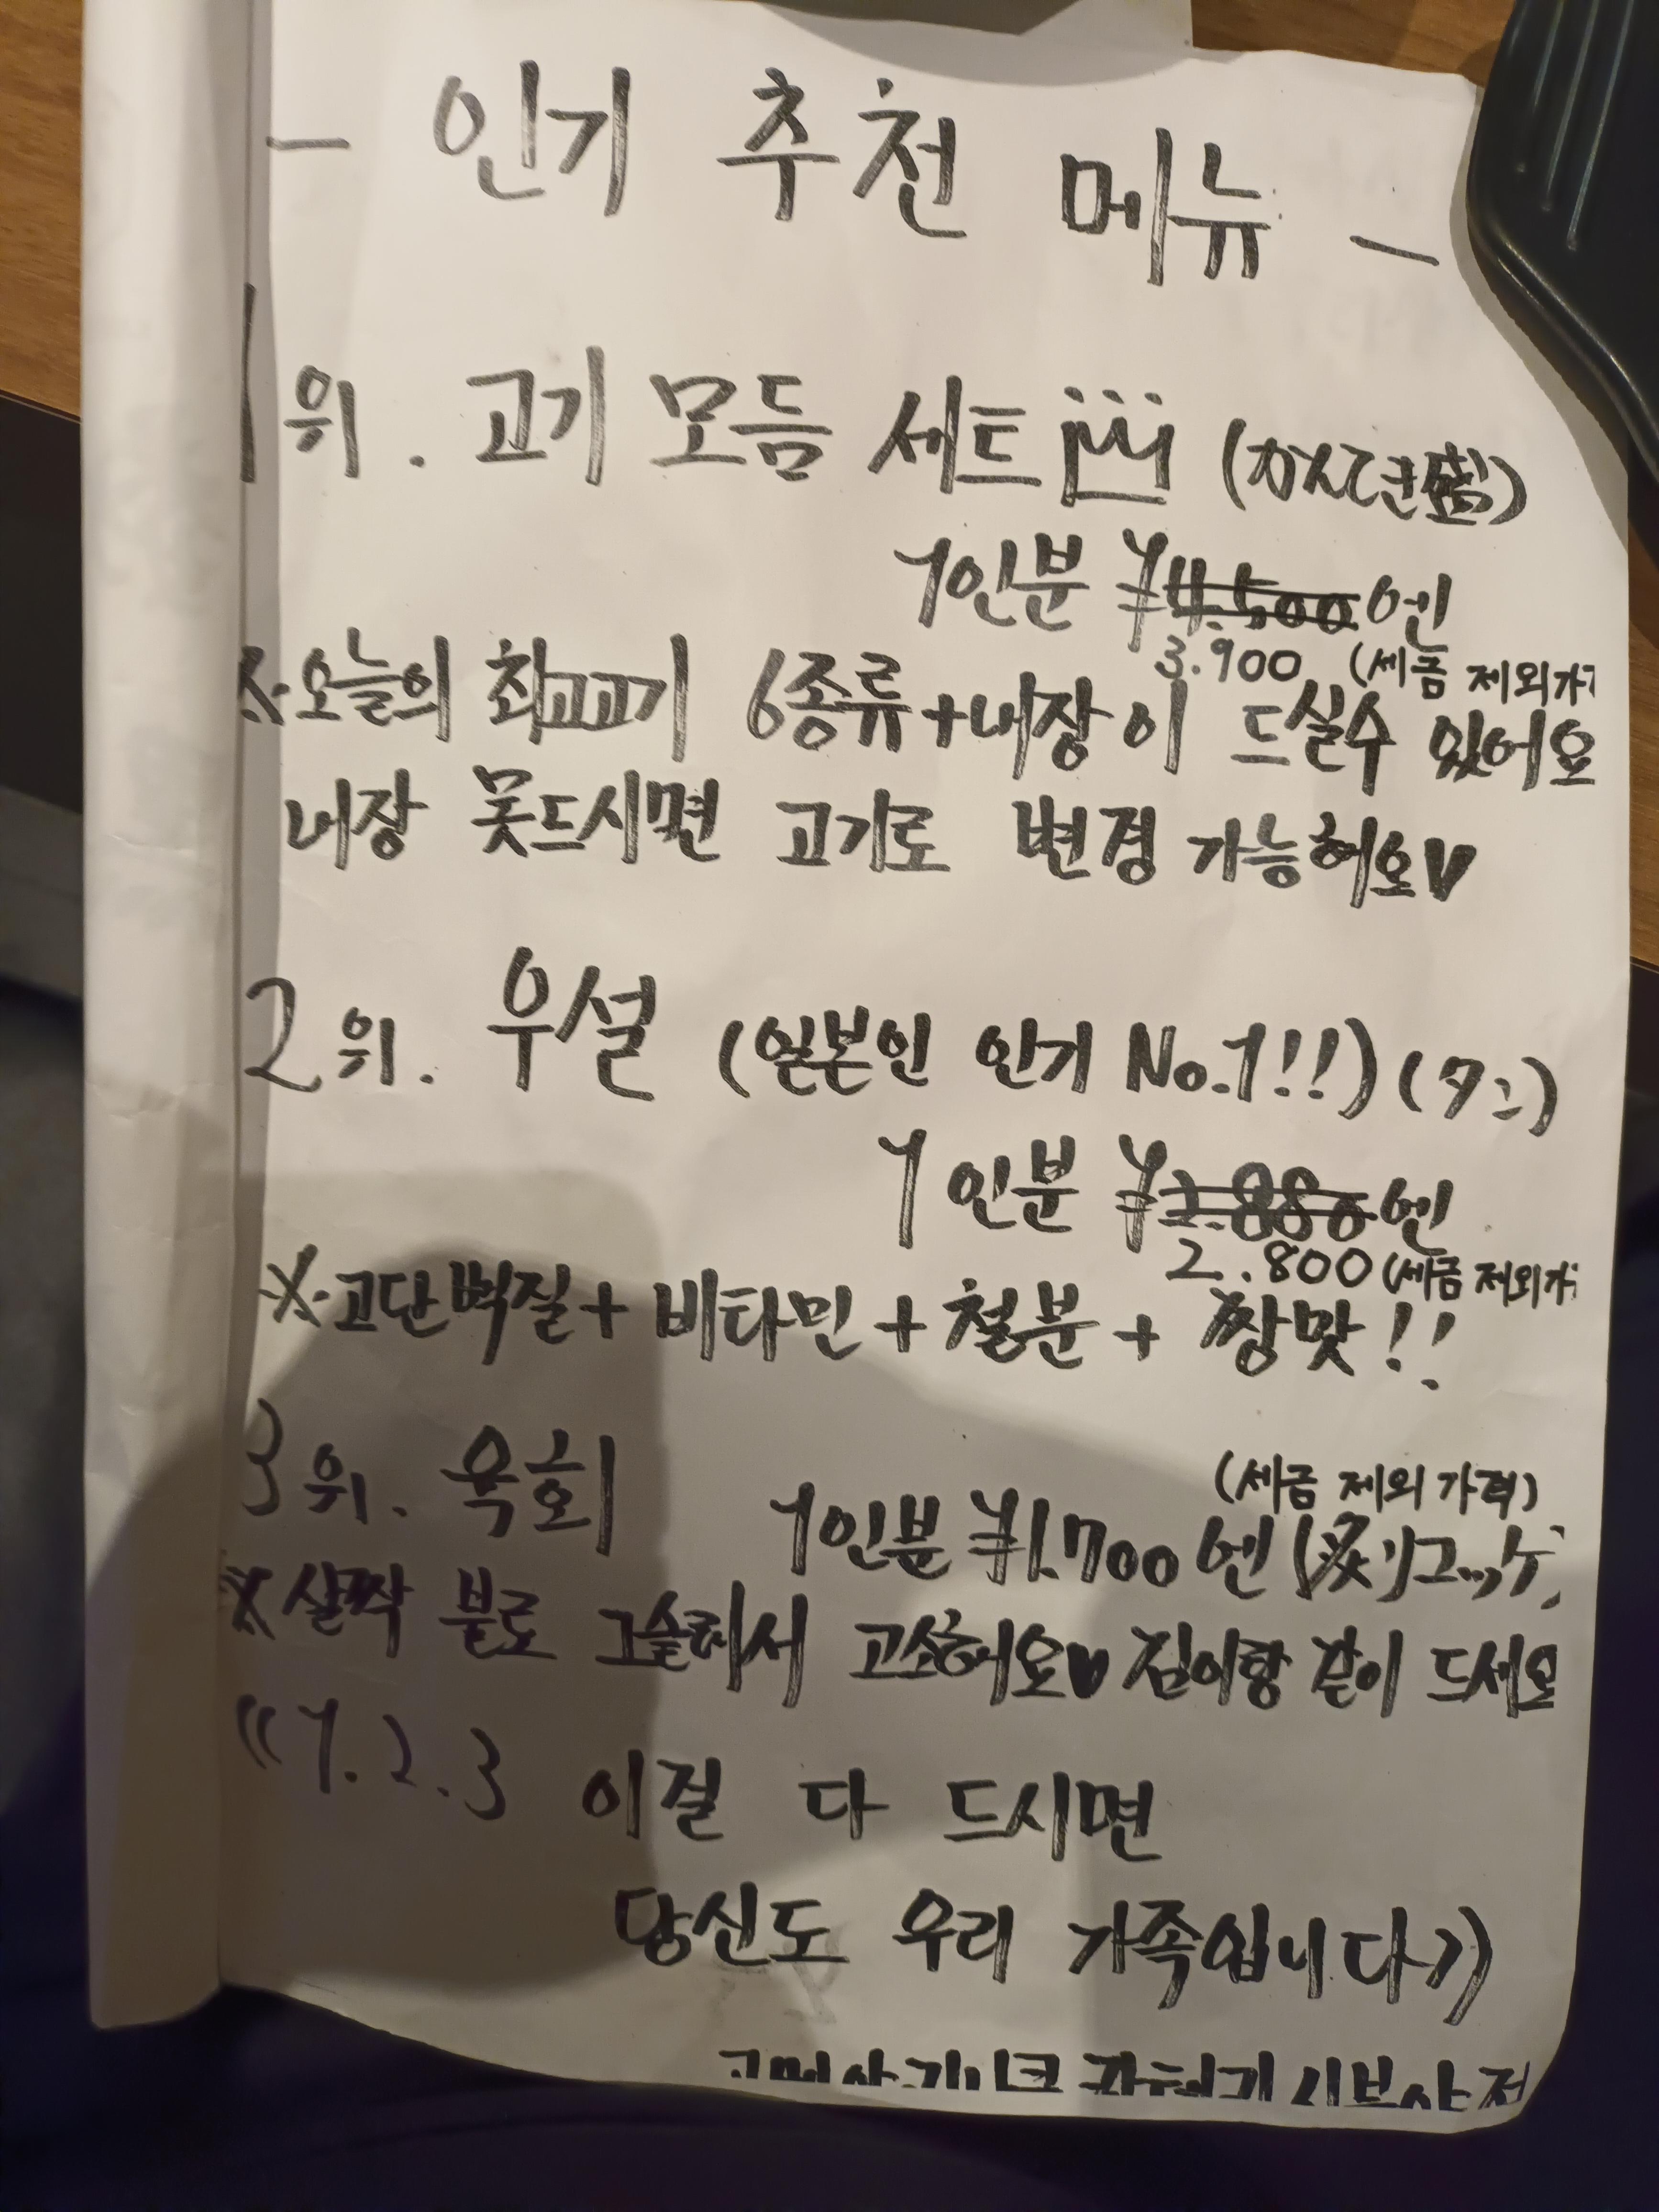 - 인기 추천 메뉴 -
1위. 고기 모듬 세트 (かんてき盛)
1인분 ¥4.500엔
3.900 (세금 제외가
※오늘의 최고고기 6종류+내장이 드실수 있어요
내장 못드시면 고기로 변경 가능해요♥
2위. 우설 (일본인 인기 No.1!!) (タン)
1인분 ¥2.880엔
2.800 (세금 제외가
※고단백질+비타민+철분+짱맛!!
(세금 제외 가격)
3위. 육회 1인분 ¥1.700엔 (炙りユッケ)
※살짝 불로 그슬려서 고소해요♥ 김이랑 같이 드세요
((1.2.3 이걸 다 드시면
당신도 우리 가족입니다))